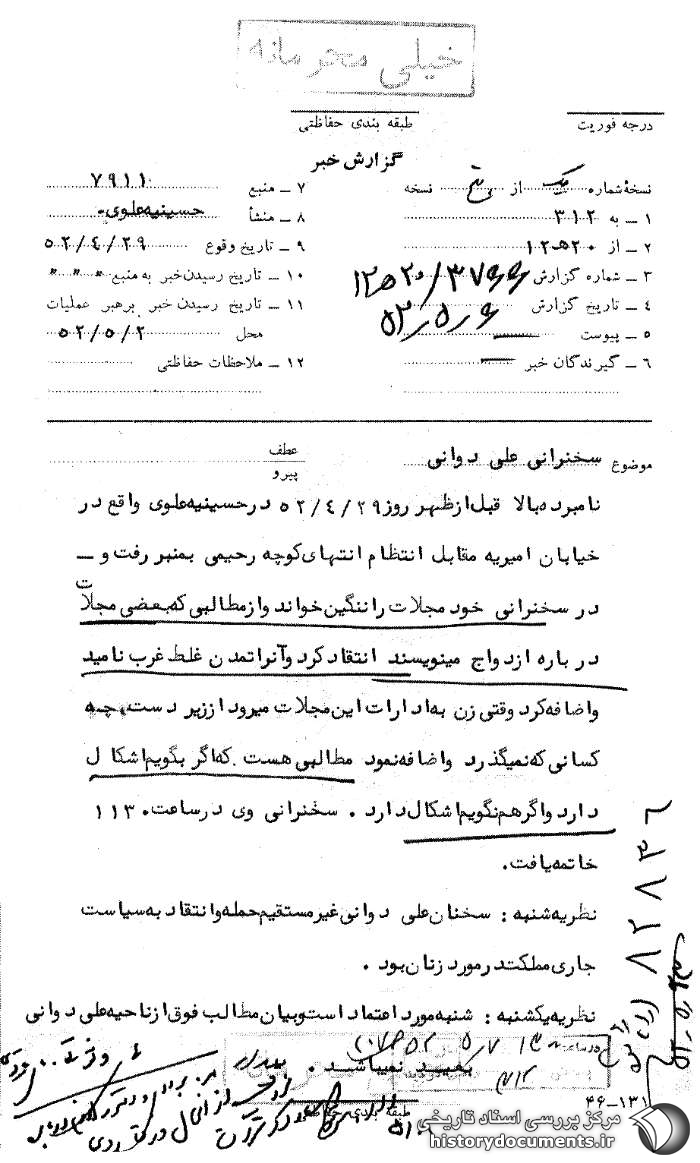 خیلی محرمانه
درجه فوریت
طبقه بندی حفاظتی
گزارش خبر
نسخهٔ شماره یک از پنج نسخه
۱ ـ به ۳۱۲
۲ ـ از ۲۰ ه‍ ۱۲
۳ ـ شماره گزارش ۱۲ه‍۲۰/۳۷۶۶
۴ ـ تاریخ گزارش
۵ ـ پیوست
۶ ـ گیرندگان خبر
۷ ـ منبع ۷۹۱۱
۸ ـ منشأ حسینیه علوی.
۹ ـ تاریخ وقوع ۵۲/۴/۲۹
۱۰ ـ تاریخ رسیدن خبر به منبع " " "
۱۱ ـ تاریخ رسیدن خبر برهبر عملیات
محل ۵۲/۵/۲
۱۲ ـ ملاحظات حفاظتی
موضوع سخنرانی علی دوانی
عطف
پیرو
نامبرده بالا قبل از ظهر روز ۵۲/۴/۲۹ در حسینیه علوی واقع در
خیابان امیریه مقابل انتظام انتهای کوچه رحیمی بمنبر رفت و ـ
در سخنرانی خود مجلات را ننگین خواند و از مطالبی که بعضی مجلات
درباره ازدواج مینویسند انتقاد کرد و آنرا تمدن غلط غرب نامید
و اضافه کرد وقتی زن به ادارات این مجلات میرود از زیر دست چه
کسانی که نمیگذرد و اضافه نمود مطالبی هست که اگر بگویم اشکال
دارد و اگر هم نگویم اشکال دارد . سخنرانی وی در ساعت ۱۱۳۰
خاتمه یافت.
نظریه شنبه : سخنان علی دوانی غیر مستقیم حمله و انتقاد به سیاست
جاری مملکت در مورد زنان بود .
نظریه یکشنبه : شنبه مورد اعتماد است و بیان مطالب فوق از ناحیه علی دوانی
بعید نمیباشد .
طبقه بندی حفاظتی
۴۶-۱۳۱
۸۲۸۳۶
مرکز بررسی اسناد تاریخی
historydocuments.ir